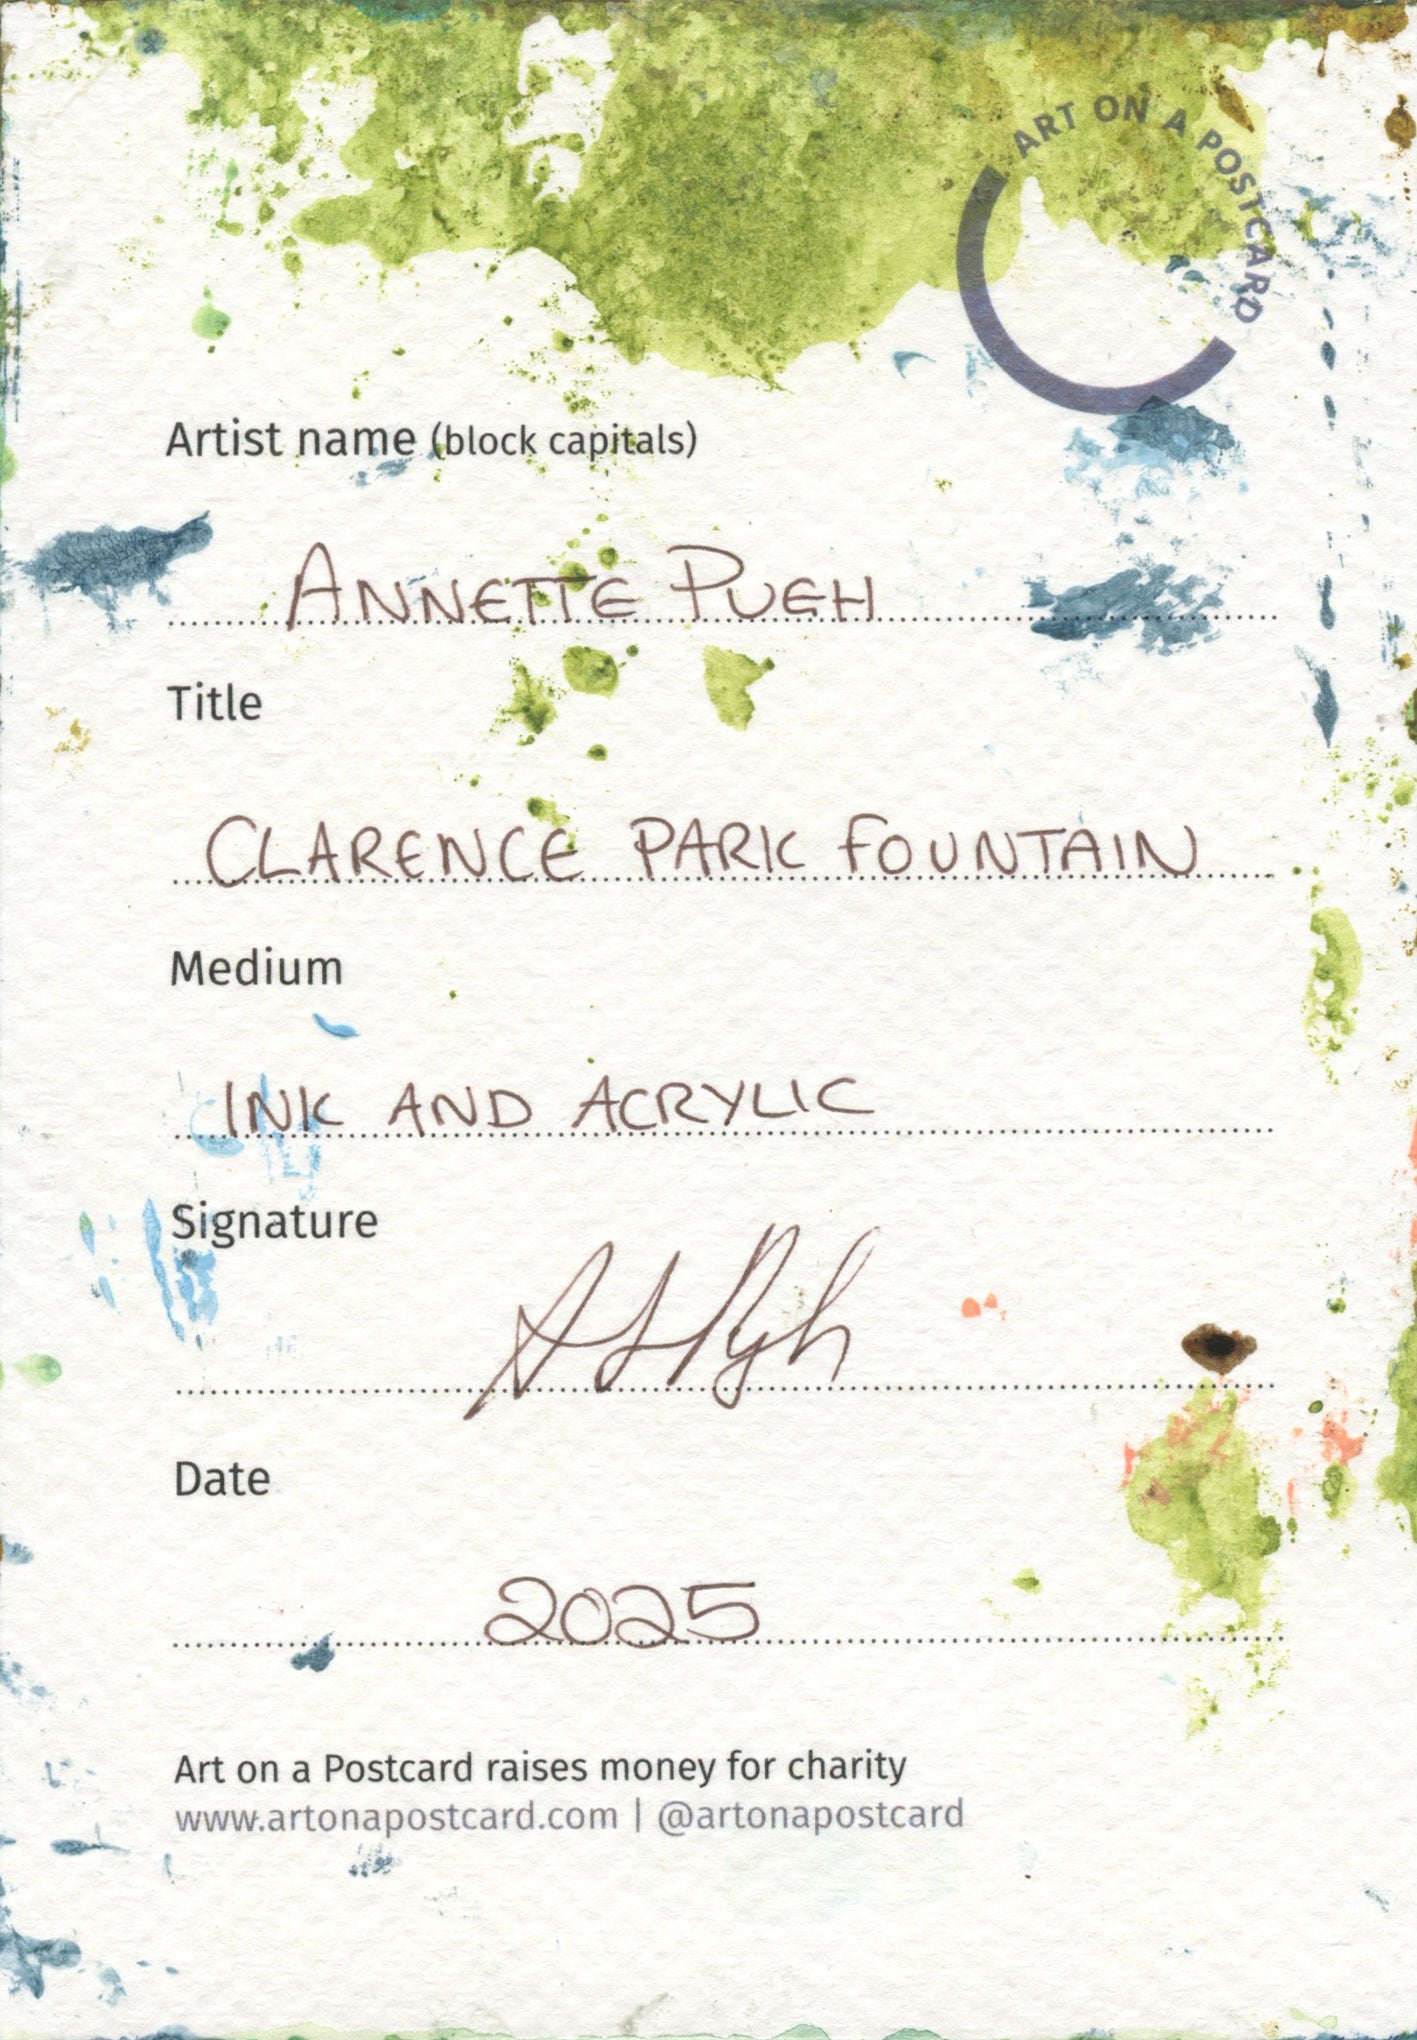 ART ON A POSTCARD
Artist name (block capitals)
ANNETTE PUGH
Title
CLARENCE PARK FOUNTAIN
Medium
INK AND ACRYLIC
Signature
Date
2025
Art on a Postcard raises money for charity
www.artonapostcard.com | @artonapostcard